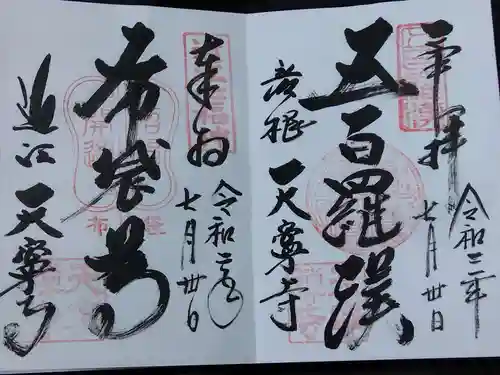 奉拝
令和二年
七月卅日
五百羅漢
彦根 天寧寺
奉拝
令和二年
七月卅日
布袋尊
近江 天寧寺